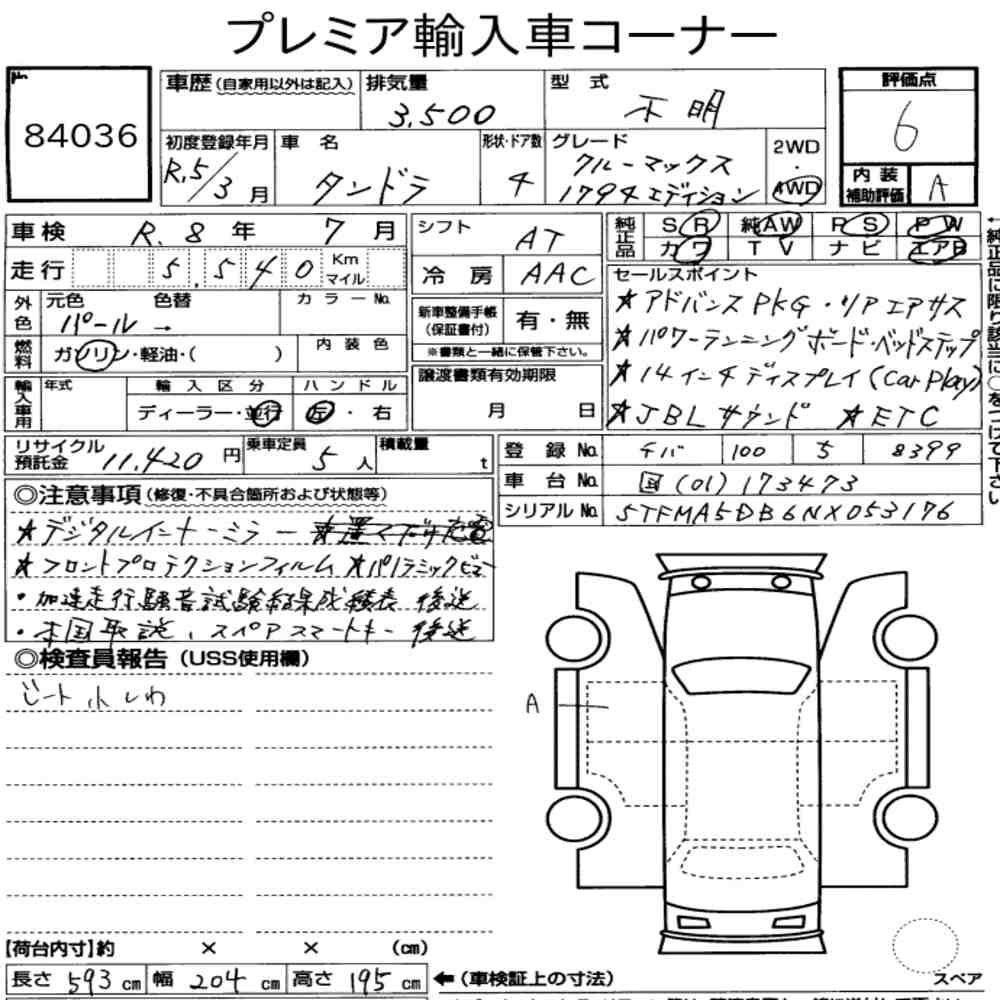 プレミア輸入車コーナー
№ 84036
車歴(自家用以外は記入) 排気量 3,500 型式 不明 評価点 6
初度登録年月 R.5/3月 車名 タンドラ 形状・ドア数 4 グレード クルーマックス 1794エディション 2WD・4WD 内装補助評価 A
車検 R.8年 7月 シフト AT 純正品 SR 純AW PS PW
カワ TV ナビ エアB
走行 5,540 Km マイル 冷房 AAC
セールスポイント
外色 元色 パール 色替 → カラーNo.
★アドバンスPKG・リアエアサス
新車整備手帳(保証書付) 有・無
★パワーランニングボード・ベッドステップ
燃料 ガソリン・軽油・( ) 内装色
※書類と一緒に保管下さい。
★14インチディスプレイ(Car Play)
輸入車用 年式 輸入区分 ディーラー・並行 ハンドル 左・右
譲渡書類有効期限 月 日
★JBLサウンド ★ETC
←純正品に限り該当に○をつけて下さい
リサイクル預託金 11,420円 乗車定員 5人 積載量 t
登録No. チバ 100 5 8399
車台No. 国(01)173473
シリアルNo. 5TFMA5DB6NX053176
◎注意事項(修復・不具合箇所および状態等)
★デジタルインナーミラー ★置くだけ充電
★フロントプロテクションフィルム ★パノラミックビュー
・加速走行騒音試験結果成績表 後送
・本国取説、スペアスマートキー 後送
◎検査員報告(USS使用欄)
シート小しわ
A
【荷台内寸】約 × × (cm)
長さ 593cm 幅 204cm 高さ 195cm ←(車検証上の寸法)
スペア